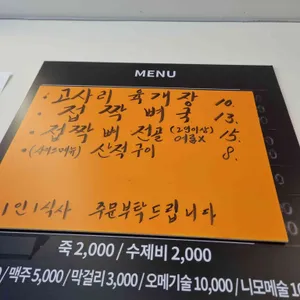 MENU
· 고사리 육개장 10.
· 접짝 뼈국 13.
· 접짝 뼈 전골 (2인이상) 여름X 15.
산적구이 8.
1인 1식사 주문부탁드립니다
죽 2,000 / 수제비 2,000
/ 맥주 5,000 / 막걸리 3,000 / 오메기술 10,000 / 니모메술